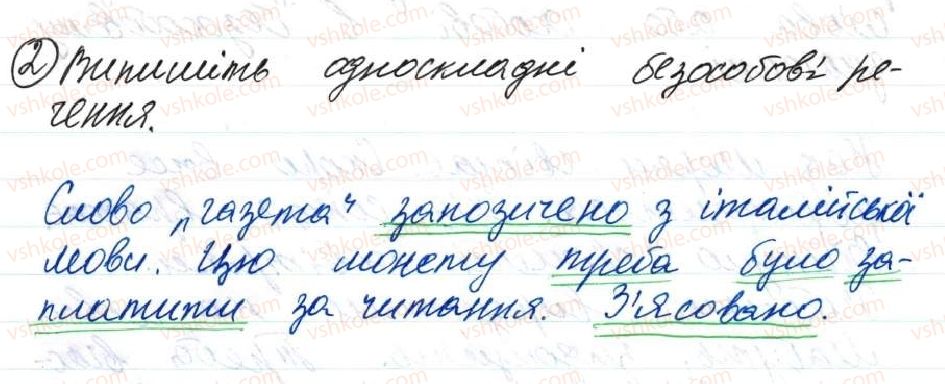 ② Випишіть односкладні безособові ре-
чення.
Слово „газета" запозичено з італійської
мови. Цю монету треба було за-
платити за читання. З'ясовано.